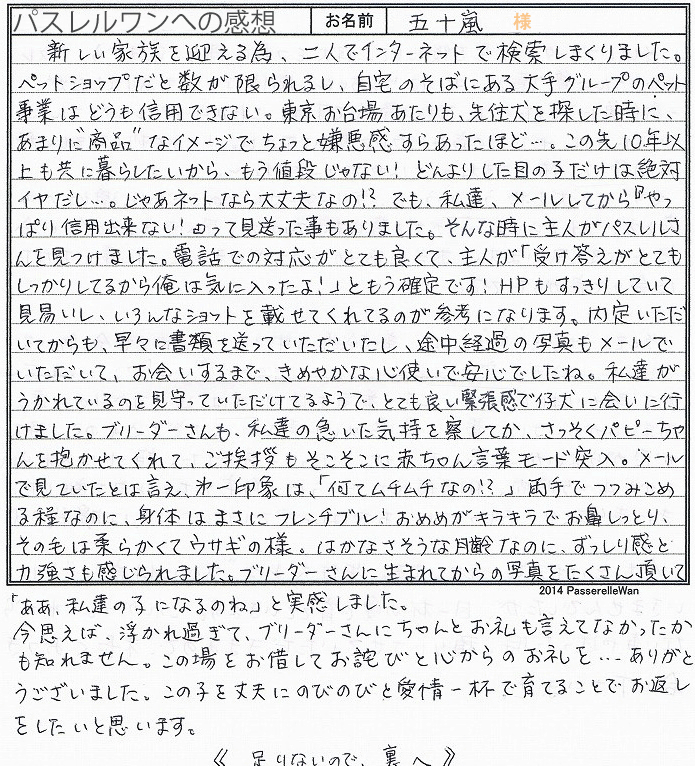 パスレルワンへの感想 お名前 五十嵐 様
新しい家族を迎える為、二人でインターネットで検索しまくりました。
ペットショップだと数が限られるし、自宅のそばにある大手グループのペット
事業はどうも信用できない。東京お台場あたりも、先住犬を探した時に、
あまりに"商品"なイメージでちょっと嫌悪感すらあったほど…。この先10年以
上も共に暮らしたいから、もう値段じゃない！どんよりした目の子だけは絶対
イヤだし…。じゃあネットなら大丈夫なの!?でも、私達、メールしてから『やっ
ぱり信用出来ない！』って見送った事もありました。そんな時に主人がパスレルさ
んを見つけました。電話での対応がとても良くて、主人が「受け答えがとても
しっかりしてるから俺は気に入ったよ！」ともう確定です！HPもすっきりしていて
見易いし、いろんなショットを載せてくれてるのが参考になります。内定いただ
いてからも、早々に書類を送っていただいたし、途中経過の写真もメールで
いただいて、お会いするまで、きめやかな心使いで安心でしたね。私達が
うかれているのを見守っていただけてるようで、とても良い緊張感で仔犬に会いに行
けました。ブリーダーさんも、私達の急いた気持を察してか、さっそくパピーちゃ
んを抱かせてくれて、ご挨拶もそこそこに赤ちゃん言葉モード突入。メール
で見ていたとは言え、第一印象は、「何てムチムチなの!?」両手でつつみこめ
る程なのに、身体はまさにフレンチブル！おめめがキラキラでお鼻しっとり、
その毛は柔らかくてウサギの様。はかなさそうな月齢なのに、ずっしり感と
力強さも感じられました。ブリーダーさんに生まれてからの写真をたくさん頂いて
2014 PasserelleWan
「ああ、私達の子になるのね。」と実感しました。
今思えば、浮かれ過ぎて、ブリーダーさんにちゃんとお礼も言えてなかったか
も知れません。この場をお借してお詫びと心からのお礼を…ありがと
うございました。この子を丈夫にのびのびと愛情一杯で育てることでお返し
をしたいと思います。
《 足りないので、裏へ 》